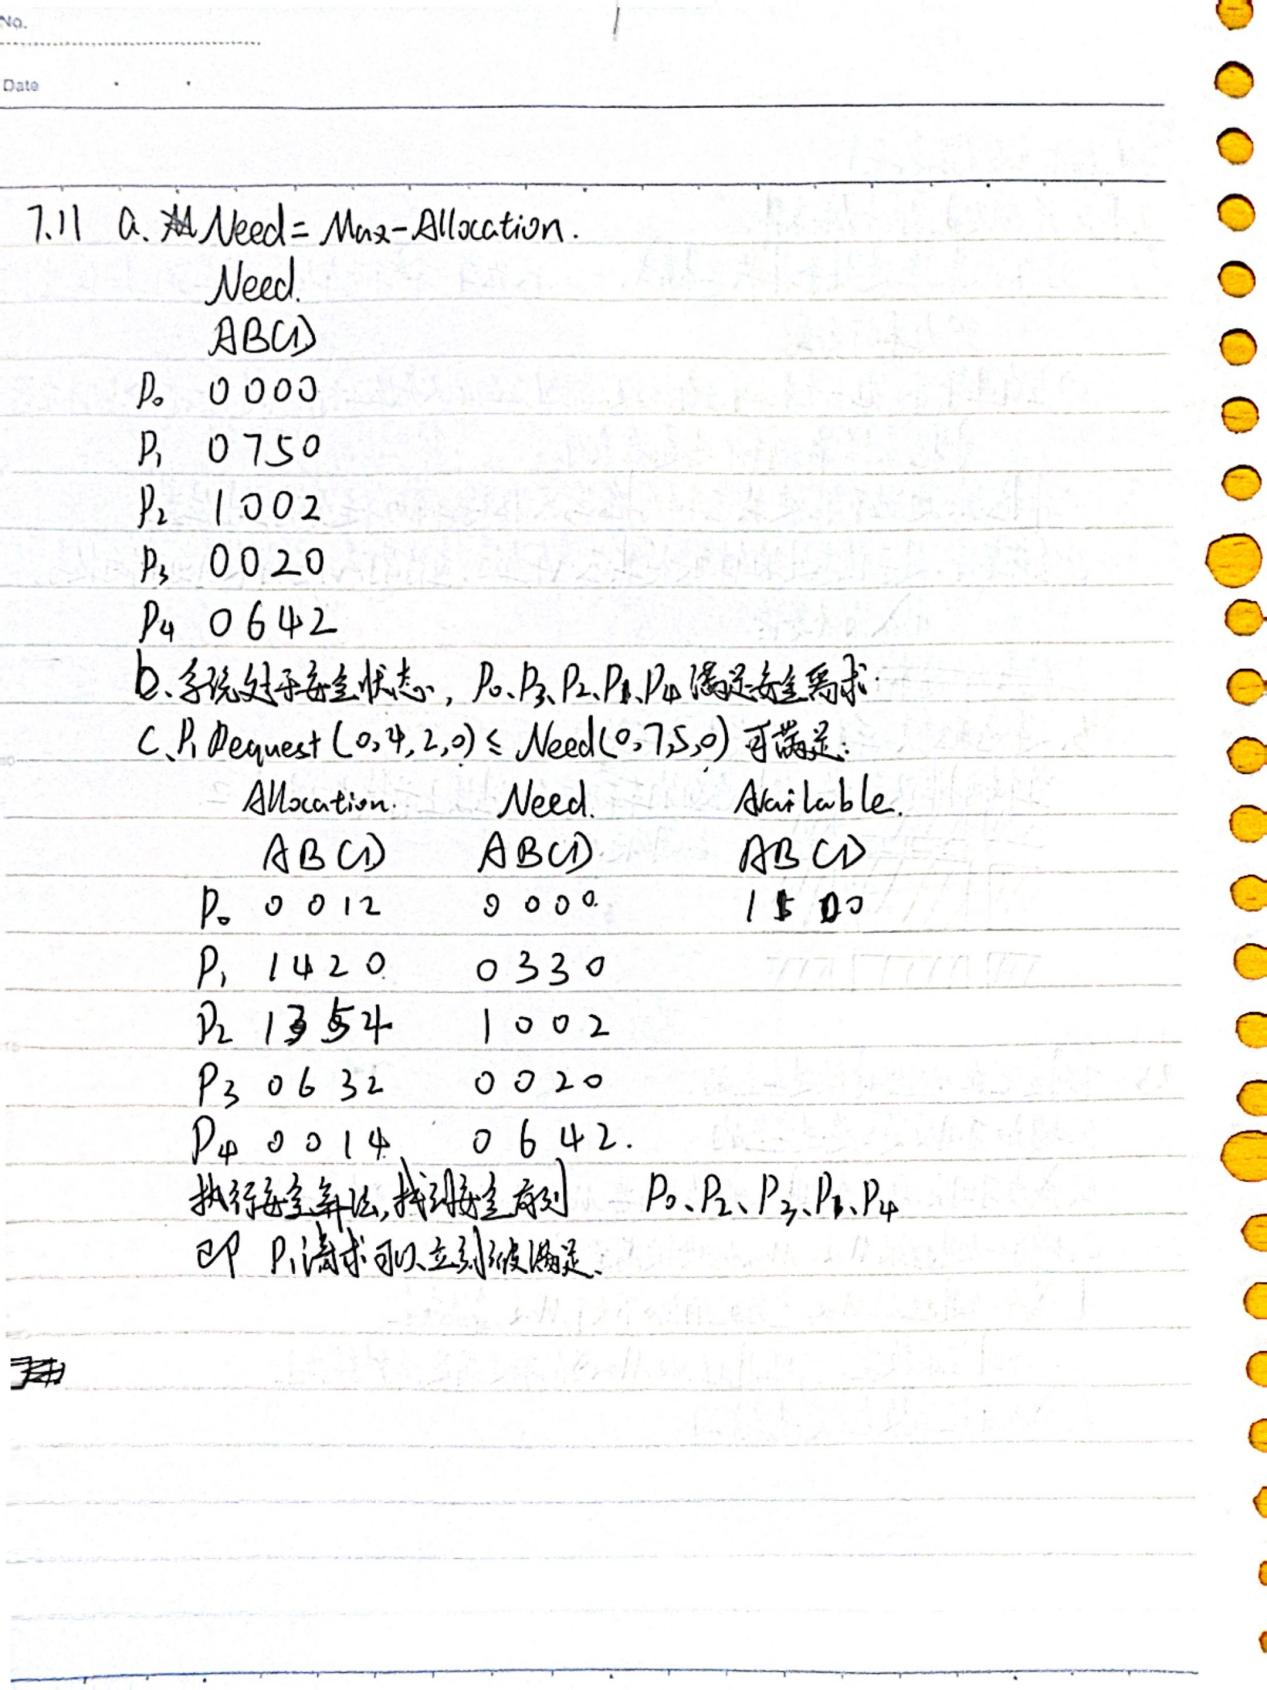 No.
Date
7.11 a. Need = Max-Allocation.
Need.
ABCD
P0 0000
P1 0750
P2 1002
P3 0020
P4 0642
b、系统处于安全状态, P0、P3、P2、P1、P4 满足安全需求.
C、P1 Request (0,4,2,0) ≤ Need(0,7,5,0) 可满足:
Allocation. Need. Available.
ABCD ABCD ABCD
P0 0012 0000 1 00
P1 1420 0330
P2 1354 1002
P3 0632 0020
P4 0014 0642.
执行安全算法,找到安全序列 P0、P2、P3、P1、P4
即 P1请求可以立刻被满足.